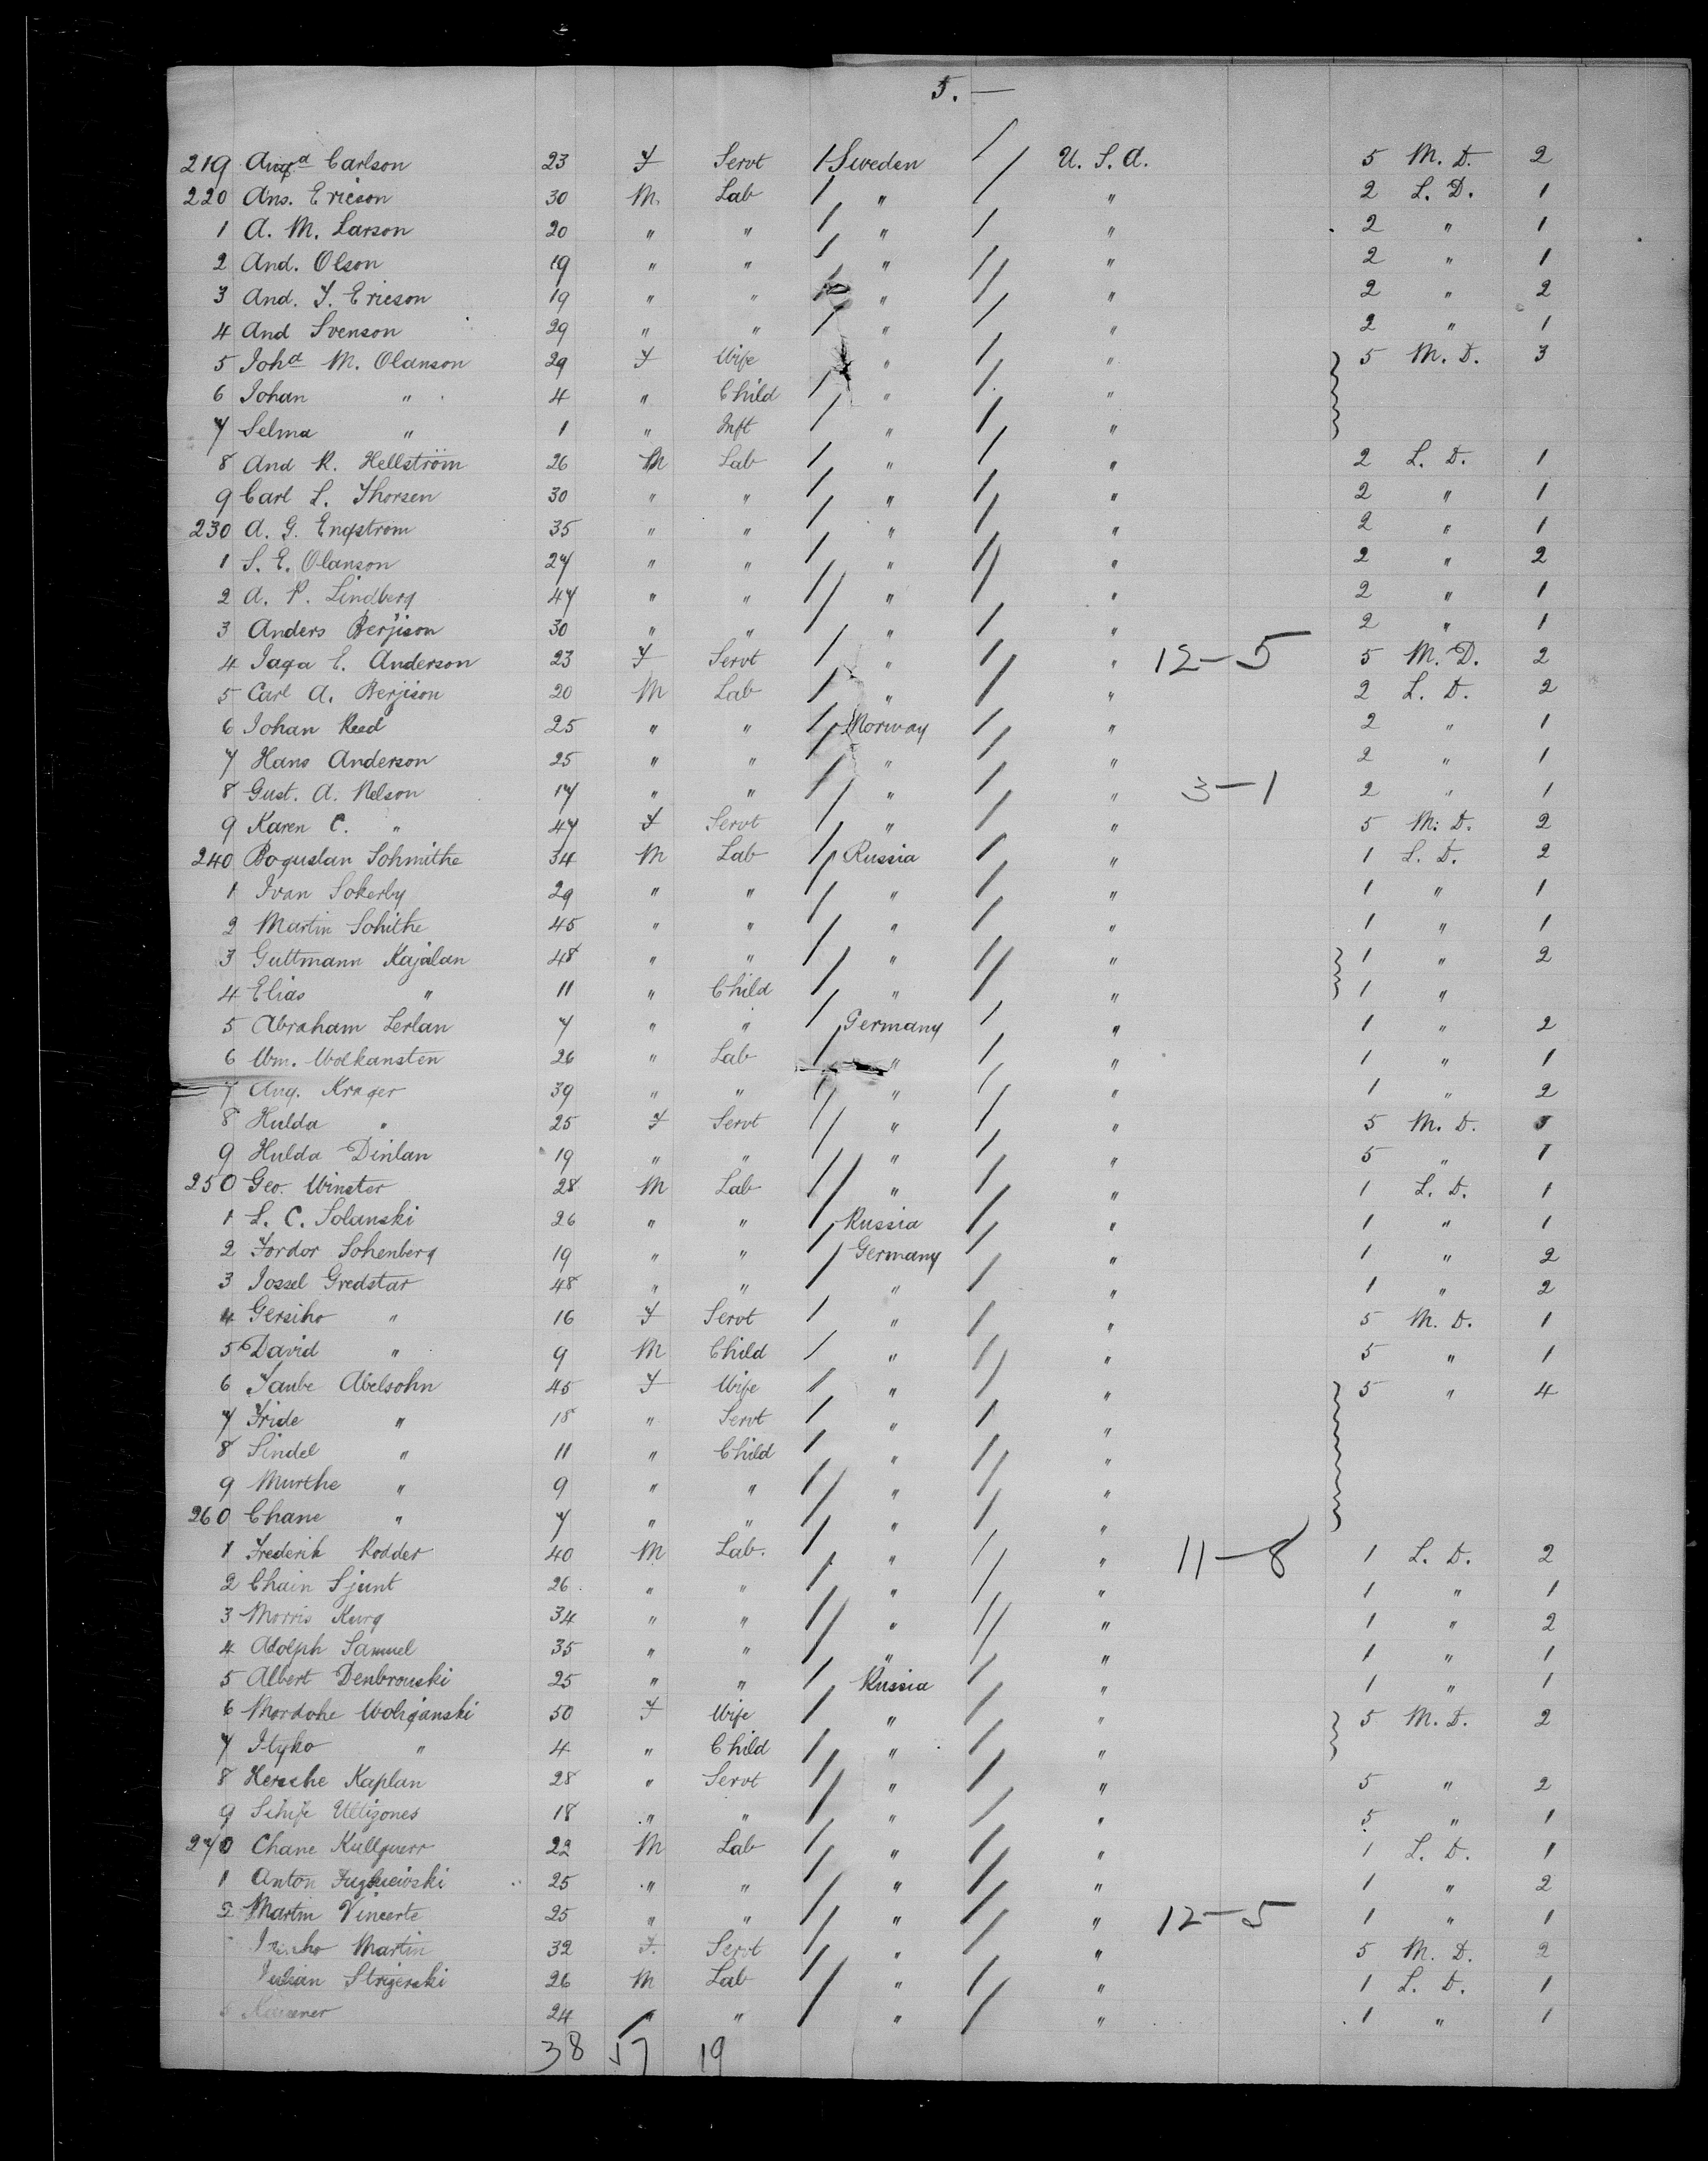 5. —
219 Augᵃ Carlson 23 F Servt / Sweden / U. S. A. 5 M. D. 2
220 Ans. Ericson 30 M. Lab / " / " 2 L. D. 1
1 A. M. Larson 20 " " / " / " 2 " 1
2 And. Olson 19 " " / " / " 2 " 1
3 And. F. Ericson 19 " " / " / " 2 " 2
4 And Svenson 29 " " / " / " 2 " 1
5 Johᵃ M. Olanson 29 F Wife / " / " 5 M. D. 3
6 Johan " 4 " Child / " / "
7 Selma " 1 " Inft / " / "
8 And R. Hellström 26 M Lab / " / " 2 L. D. 1
9 Carl L. Thorsen 30 " " / " / " 2 " 1
230 A. G. Engstrom 35 " " / " / " 2 " 1
1 S. E. Olanson 27 " " / " / " 2 " 2
2 A. P. Lindberg 47 " " / " / " 2 " 1
3 Anders Berjison 30 " " / " / " 2 " 1
4 Jaga E. Anderson 23 F Servt / " / " 12-5 5 M. D. 2
5 Carl A. Berjison 20 M Lab / " / " 2 L. D. 2
6 Johan Reed 25 " " / Norway / " 2 " 1
7 Hans Anderson 25 " " / " / " 2 " 1
8 Gust. A. Nelson 17 " " / " / " 3-1 2 " 1
9 Karen C. " 47 F Servt / " / " 5 M. D. 2
240 Boguslan Sohmithe 34 M Lab / Russia / " 1 L. D. 2
1 Ivan Sokerby 29 " " / " / " 1 " 1
2 Martin Sohithe 45 " " / " / " 1 " 1
3 Guttmann Kajalan 48 " " / " / " 1 " 2
4 Elias " 11 " Child / " / " 1 "
5 Abraham Lerlan 7 " " / Germany / " 1 " 2
6 Wm. Wolkansten 26 " Lab / " / " 1 " 1
7 Aug. Krager 39 " " / " / " 1 " 2
8 Hulda " 25 F Servt / " / " 5 M. D.
9 Hulda Dinlan 19 " " / " / " 5 " 1
250 Geo. Winster 28 M Lab / " / " 1 L. D. 1
1 L. C. Solanski 26 " " / Russia / " 1 " 1
2 Fordor Sohenberg 19 " " / Germany / " 1 " 2
3 Jossel Gredstar 48 " " / " / " 1 " 2
4 Gersiho " 16 F Servt / " / " 5 M. D. 1
5 David " 9 M Child / " / " 5 " 1
6 Taube Abelsohn 45 F Wife / " / " 5 " 4
7 Fride " 18 " Servt / " / "
8 Sindel " 11 " Child / " / "
9 Murthe " 9 " " / " / "
260 Chane " 7 " " / " / "
1 Frederik Rodder 40 M Lab. / " / " 11-8 1 L. D. 2
2 Chain Sjunt 26 " " / " / " 1 " 1
3 Morris Kurg 34 " " / " / " 1 " 2
4 Adolph Samuel 35 " " / " / " 1 " 1
5 Albert Denbrouski 25 " " / Russia / " 1 " 1
6 Mordohe Wohganski 50 F Wife / " / " 5 M. D. 2
7 Ityko " 4 " Child / " / "
8 Hersche Kaplan 28 " Servt / " / " 5 " 2
9 Schife Ultizones 18 " " / " / " 5 " 1
270 Chane 22 M Lab / " / " 1 L. D. 1
1 Anton 25 " " / " / " 1 " 2
2 Martin Vincerte 25 " " / " / " 12-5 1 " 1
Martin 32 F. Servt / " / " 5 M. D. 2
Strigerski 26 M Lab / " / " 1 L. D. 1
24 " " / " / " 1 " 1
38 57 19